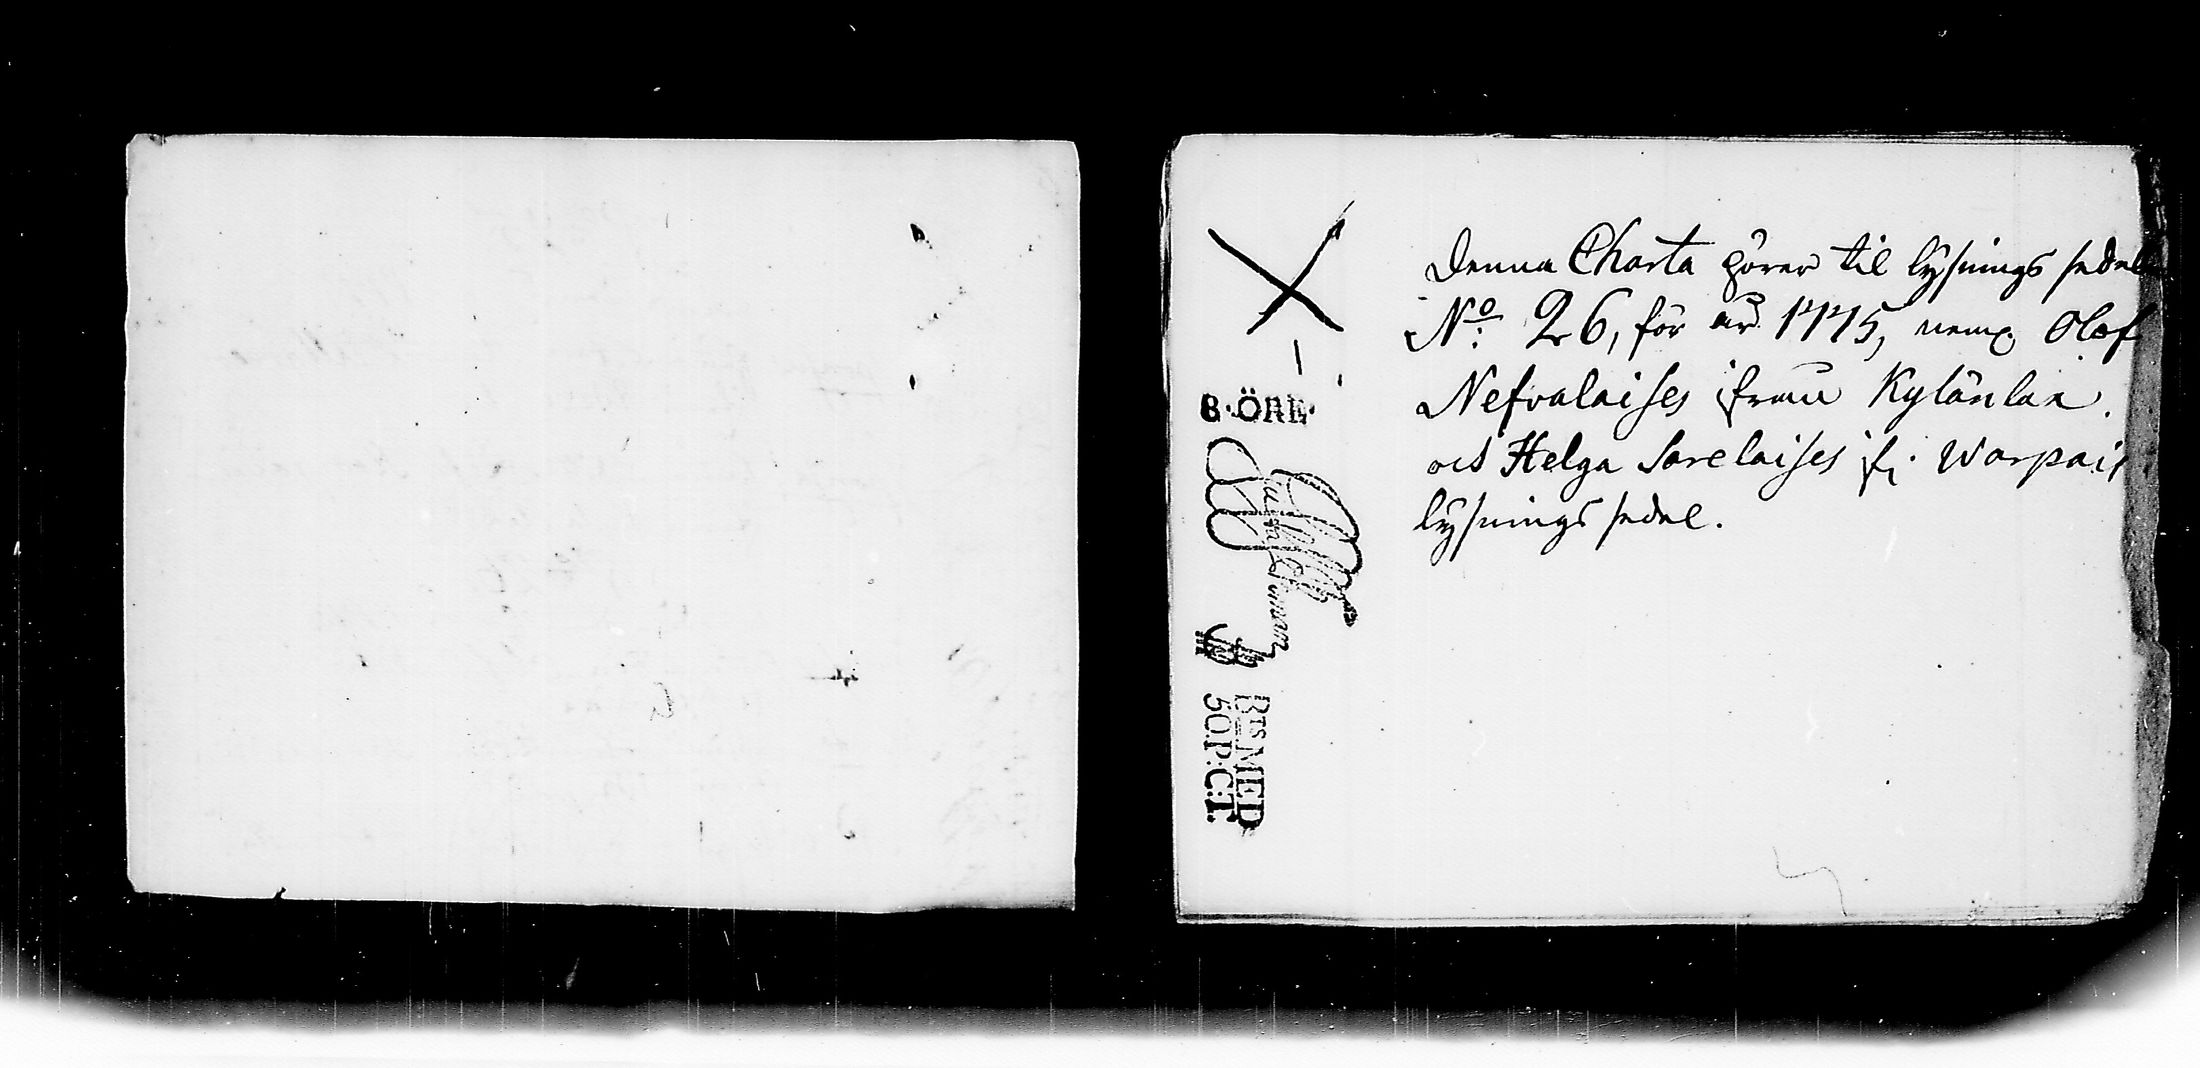 Denna Charta hörer til lysnings sedel
No: 26, för år 1775, neml. Olof
Nefvalaises ifrån Kylänlax.
och Helga Sarelaises if: Warpais
lysnings sedel.
8·ÖRE·
BTS MED
50.P:C:T.